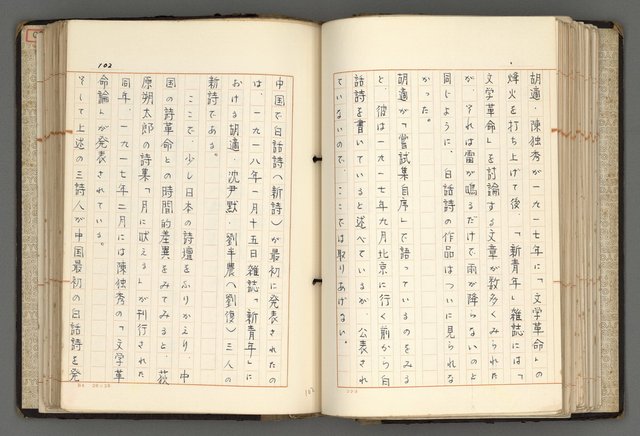 胡適、陳独秀が一九一七年に「文学革命」の
烽火を打ち上げて後、「新青年」雑誌には「
文学革命」を討論する文章が数多くみられた
が、それは雷が鳴るだけで雨が降らないのと
同じように、白話詩の作品はついに見られな
かった。
胡適が「嘗試集自序」で語っているのをみる
と、彼は一九一七年九月北京に行く前から白
話詩を書いていると述べているが、公表され
ていないので、ここでは取りあげない。
102
中国で白話詩（新詩）が最初に発表されたの
は、一九一八年一月十五日雑誌「新青年」に
おける胡適・沈尹默・劉半農（劉復）三人の
新詩である。
ここで、少し日本の詩壇をふりかえり、中
国の詩革命との時間的差異をみてみると、萩
原朔太郎の詩集「月に吠える」が刊行された
同年、一九一七年二月には陳独秀の「文学革
命論」が発表されている。
そして上述の三詩人が中国最初の白話詩を発
103